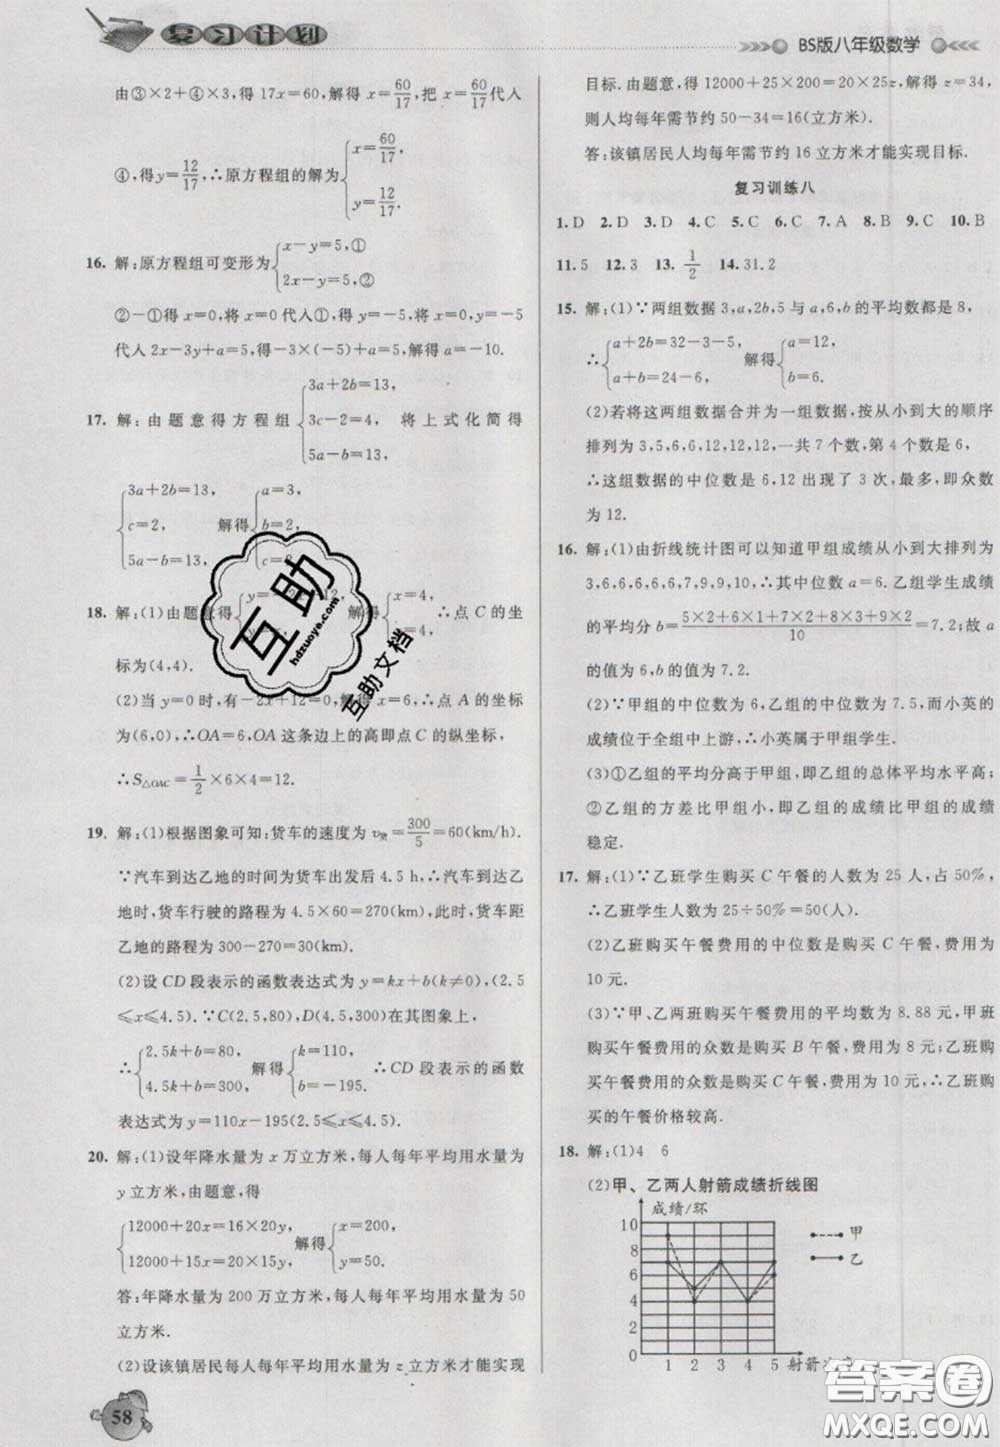 复习计划
BS版八年级数学
由③×2+④×3,得17x=60,解得 x=60/17,把 x=60/17代人
④,得y=12/17,∴原方程组的解为{x=60/17, y=12/17.
16. 解:原方程组可变形为{x-y=5,① 2x-y=5,②
②-①得 x=0,将 x=0代人①,得y=-5,将 x=0,y=-5
代人 2x-3y+a=5,得-3×(-5)+a=5,解得 a=-10.
17. 解:由题意得方程组{3a+2b=13, 3c-2=4, 5a-b=13, 将上式化简得
{3a+2b=13, c=2, 5a-b=13, 解得{a=3, b=2,
18. 解:(1)由题意得 解得{x=4, ∴点 C 的坐
标为(4,4).
(2)当 y=0时,有-2x+12=0,解得 x=6.∴点 A 的坐标
为(6,0),∴OA=6,OA 这条边上的高即点 C 的纵坐标,
∴S△OAC=1/2×6×4=12.
19. 解:(1)根据图象可知:货车的速度为 v货=300/5=60(km/h).
∵汽车到达乙地的时间为货车出发后4.5 h,∴汽车到达乙
地时,货车行驶的路程为 4.5×60=270(km),此时,货车距
乙地的路程为 300-270=30(km).
(2)设 CD 段表示的函数表达式为 y=kx+b(k≠0)(2.5
≤x≤4.5).∵C(2.5,80),D(4.5,300)在其图象上,
∴{2.5k+b=80, 4.5k+b=300, 解得{k=110, b=-195. ∴CD 段表示的函数
表达式为 y=110x-195(2.5≤x≤4.5).
20. 解:(1)设年降水量为 x 万立方米,每人每年平均用水量为
y 立方米,由题意,得
{12000+20x=16×20y, 12000+15x=20×15y, 解得{x=200, y=50.
答:年降水量为 200 万立方米,每人每年平均用水量为 50
立方米.
(2)设该镇居民每人每年平均用水量为 z 立方米才能实现
58
目标.由题意,得 12000+25×200=20×25z,解得 z=34,
则人均每年需节约 50-34=16(立方米).
答:该镇居民人均每年需节约 16 立方米才能实现目标.
复习训练八
1.D 2.D 3.D 4.C 5.C 6.C 7.A 8.B 9.C 10.B
11.5 12.3 13.1/2 14.31.2
15. 解:(1)∵两组数据 3,a,2b,5 与 a,6,b 的平均数都是 8,
∴{a+2b=32-3-5, a+b=24-6, 解得{a=12, b=6.
(2)若将这两组数据合并为一组数据,按从小到大的顺序
排列为 3,5,6,6,12,12,12,一共 7 个数,第 4 个数是 6,
∴这组数据的中位数是 6,12 出现了 3 次,最多,即众数
为 12.
16. 解:(1)由折线统计图可以知道甲组成绩从小到大排列为
3,6,6,6,6,6,7,9,9,10,∴其中位数 a=6.乙组学生成绩
的平均分 b=5×2+6×1+7×2+8×3+9×2/10=7.2;故 a
的值为 6,b 的值为 7.2.
(2)∵甲组的中位数为 6,乙组的中位数为 7.5,而小英的
成绩位于全组中上游,∴小英属于甲组学生.
(3)①乙组的平均分高于甲组,即乙组的总体平均水平高;
②乙组的方差比甲组小,即乙组的成绩比甲组的成绩
稳定.
17. 解:(1)∵乙班学生购买 C 午餐的人数为 25 人,占 50%,
∴乙班学生人数为 25÷50%=50(人).
(2)乙班购买午餐费用的中位数是购买 C 午餐,费用为
10 元.
(3)∵甲、乙两班购买午餐费用的平均数为 8.88 元,甲班
购买午餐费用的众数是购买 B 午餐,费用为 8 元;乙班购
买午餐费用的众数是购买 C 午餐,费用为 10 元,∴乙班购
买的午餐价格较高.
18. 解:(1)4 6
(2)甲、乙两人射箭成绩折线图
成绩/环
10
8
6
4
2
0
1 2 3 4 5 射箭次序
甲
乙
互助
hdzuoye.com
互助文档
答案圈
MXQE.COM